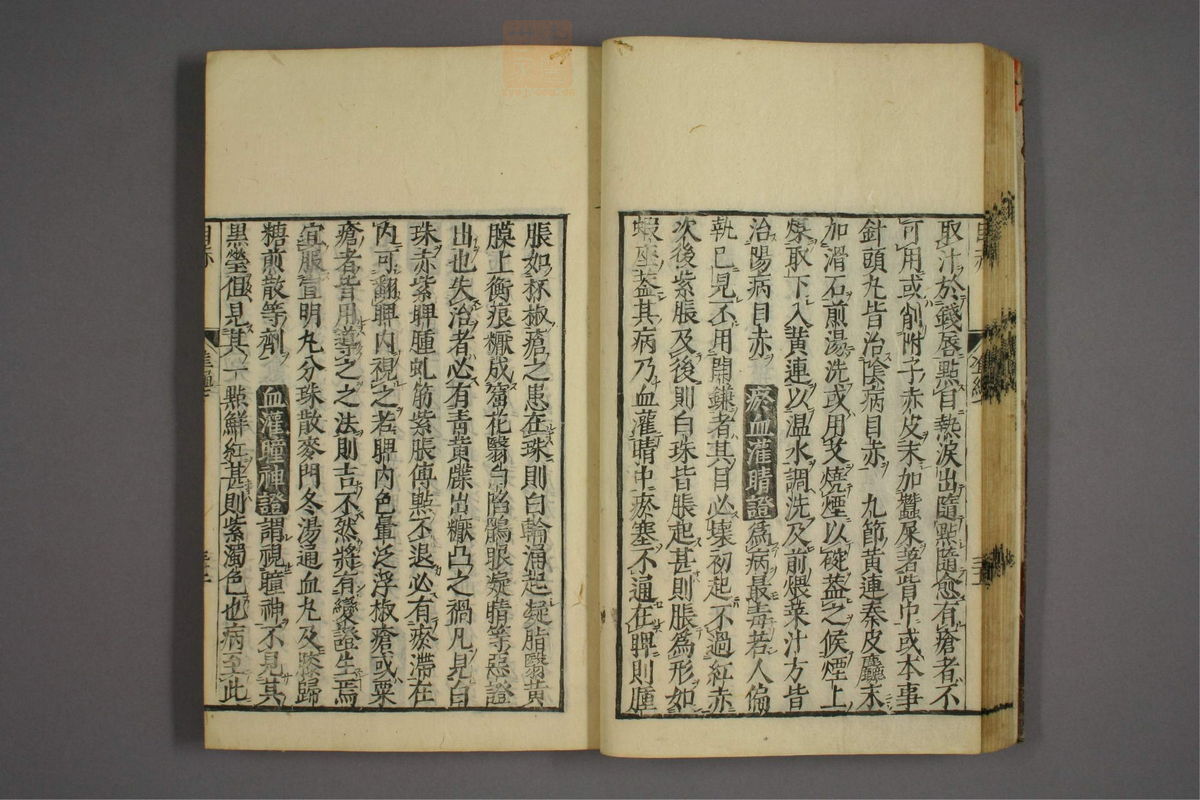 取汁於錢唇點目熱淚出隨點隨愈有瘡者不
可用或削附子赤皮末加蠶屎著眥中或本事
針頭丸皆治陰病目赤 九節黃連秦皮麤末
加滑石煎湯洗或用艾燒煙以碗蓋之候煙上
煤取下入黃連以温水調洗及前煨菜汁方皆
治陽病目赤 瘀血灌睛證 爲病最毒若人偏
執已見不用開鎌者其目必壞初起不過紅赤
次後紫脹及後則白珠皆脹起甚則脹爲形如
蝦座蓋其病乃血灌睛中瘀塞不通在睥則腫
脹如杯椒瘡之患在珠則白輪涌起凝脂翳黃
膜上衝痕㿜成窟花翳白陷鶻眼凝睛等惡證
出也失治者必有青黃牒出㿜凸之禍凡見白
珠赤紫睥腫虬筋紫脹傅點不退必有瘀滯在
內可翻睥內視之若睥內色暈泛浮椒瘡或粟
瘡者皆用導之之法則吉不然將有變證生焉
宜服宣明丸分珠散麥門冬湯通血丸及勝歸
糖煎散等劑 血灌瞳神證 謂視瞳神不見其
黑瑩但見其一點鮮紅甚則紫濁色也病至此